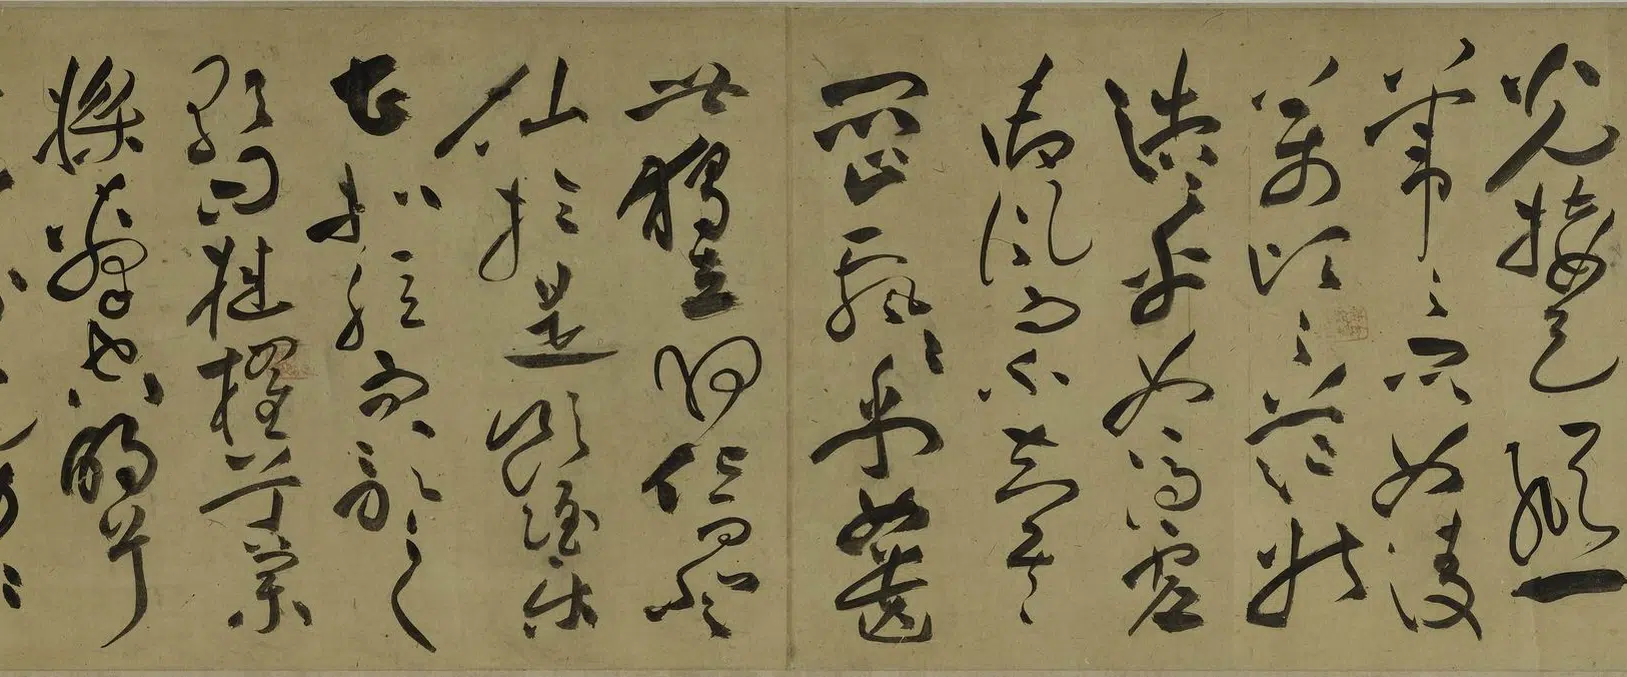 光接天縱一
葦之所如凌
萬頃之茫然
浩浩乎如馮虛
御風而不知其
所止飄飄乎如遺
世獨立羽化而登
仙於是飲酒樂
甚扣舷而歌之
歌曰桂棹兮蘭
槳擊空明兮